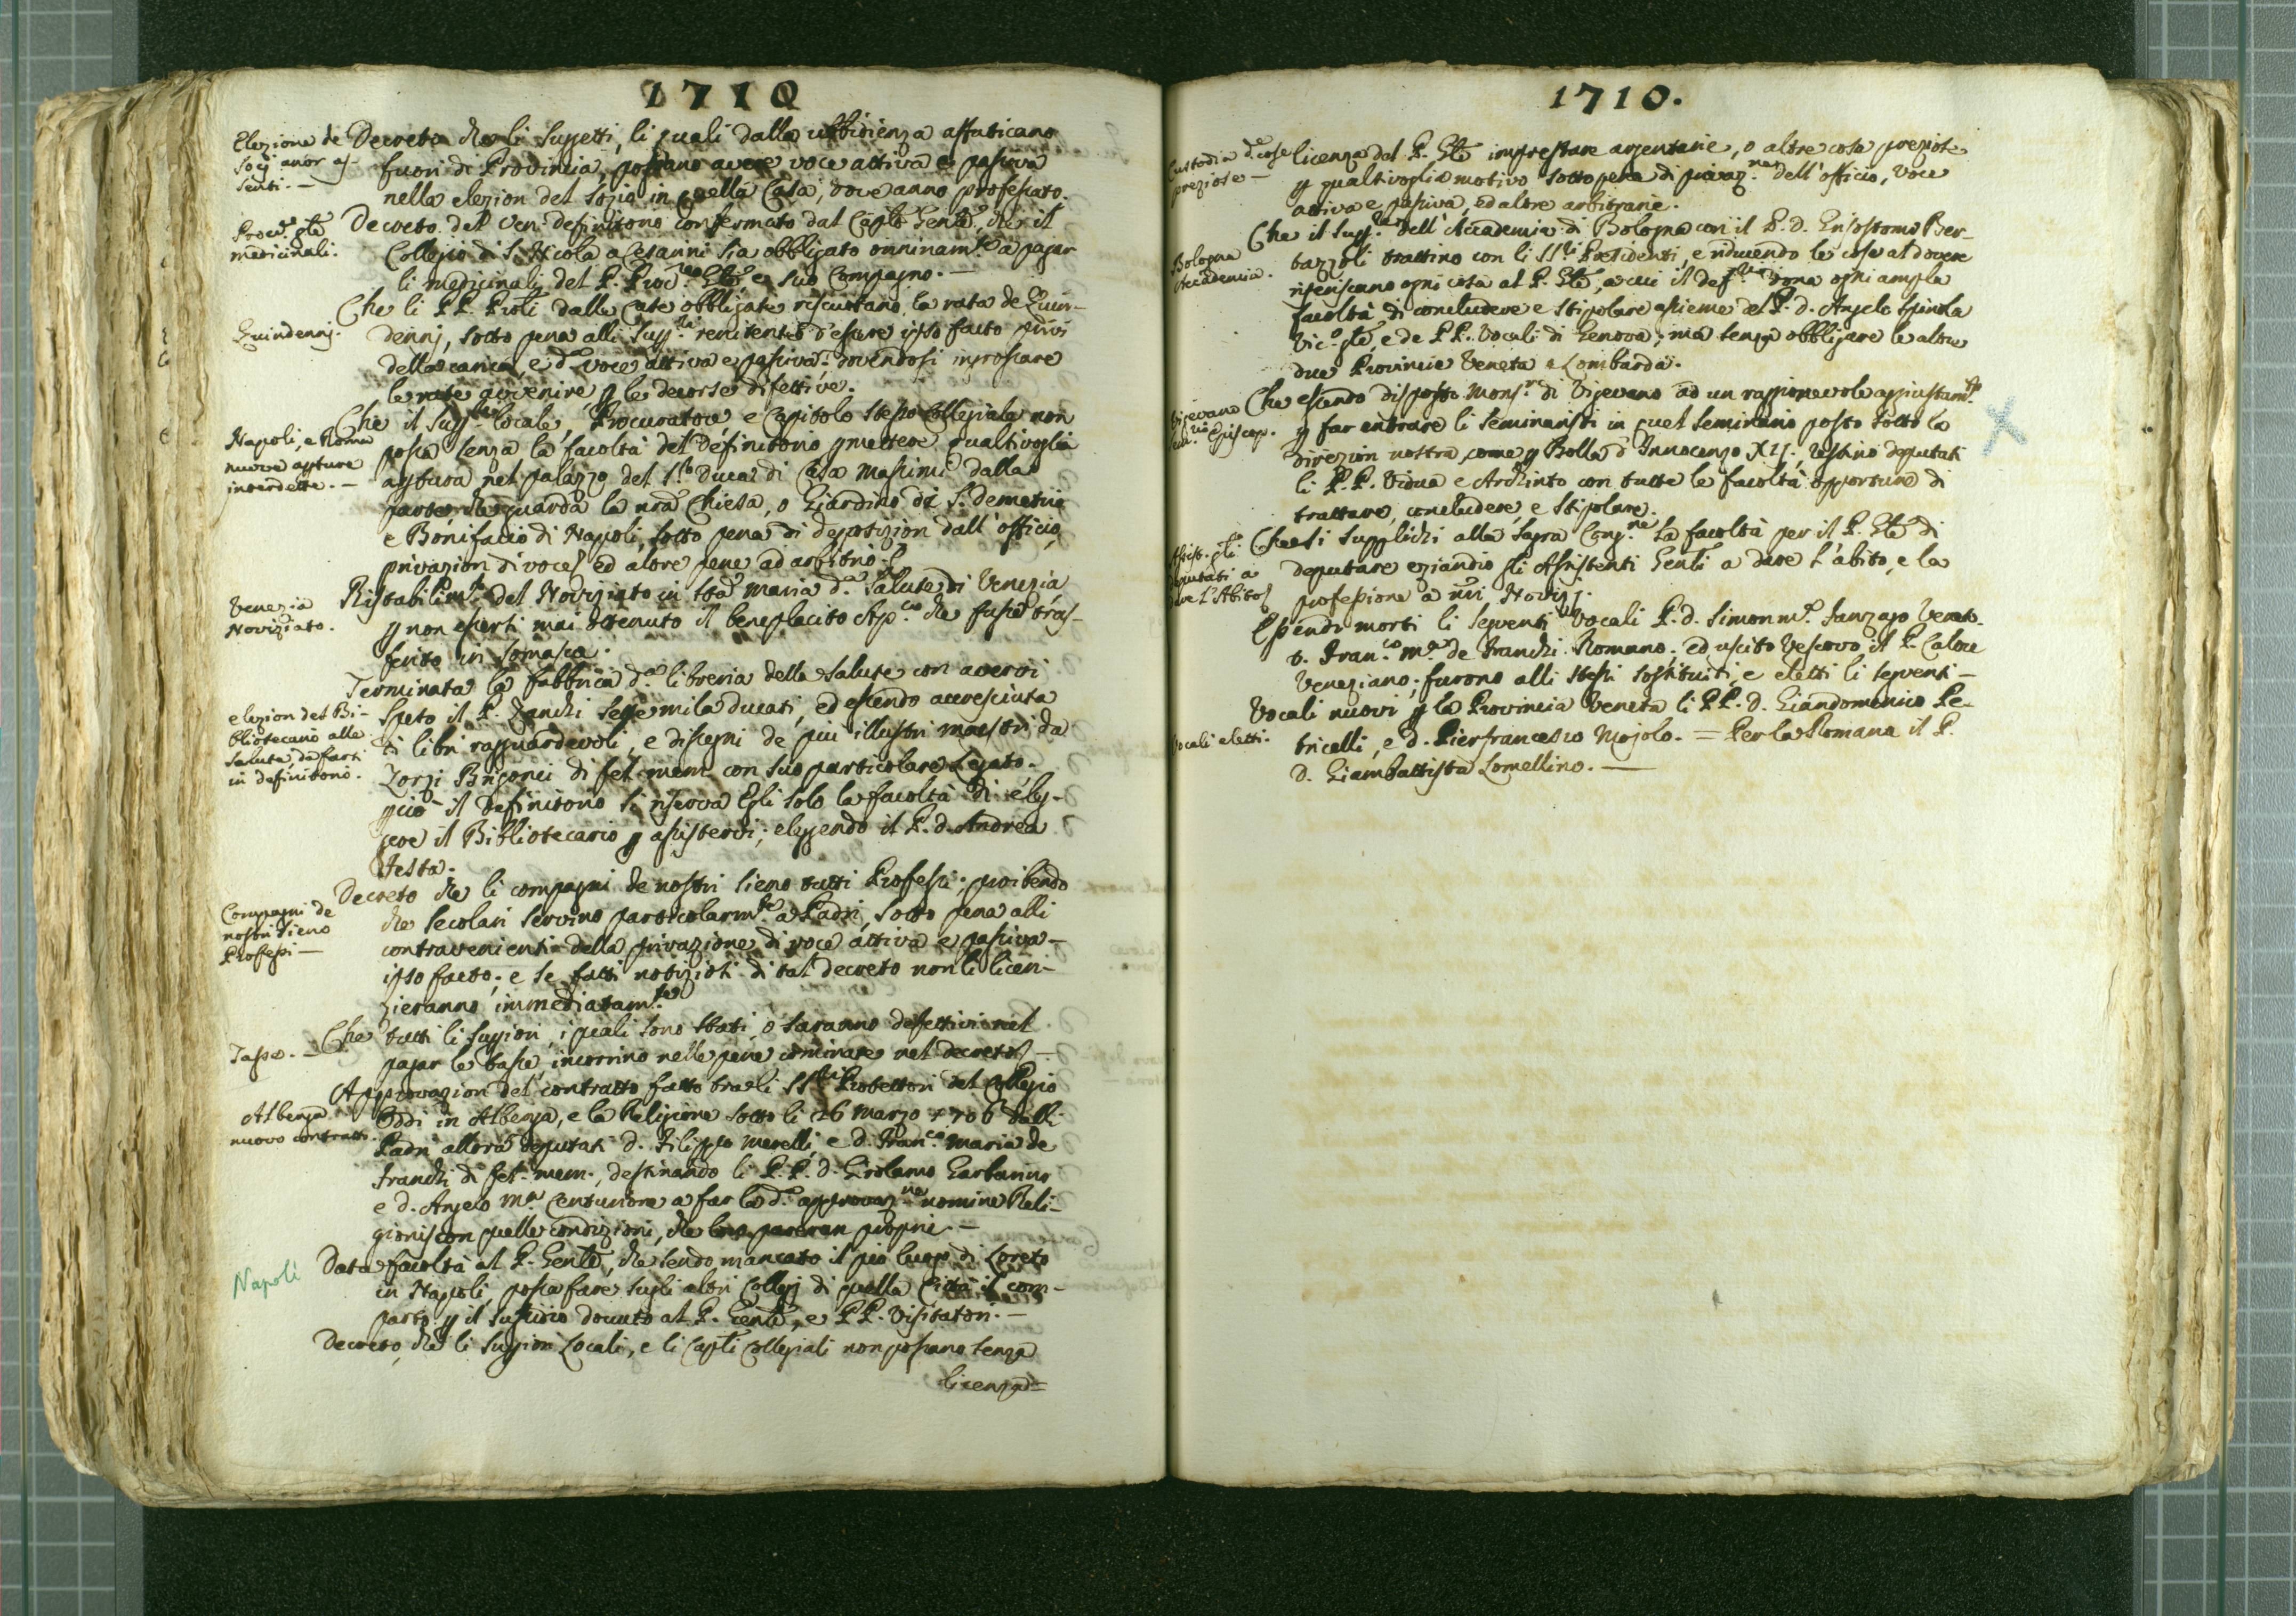 1710
Elezione de
Socj anor as-
senti. —
Decreto che li Suggetti, li quali dalla ubbidienza affaticano
fuori di Provincia, possano avere voce attiva e passiva
nella elezion del Sozio in quella Casa, dove anno professato.
Proc.re gle
medicinali.
Decreto del Ven. definitorio confermato dal Caplo Genle, che il
Collegio di S. Nicola a Cesarini sia obbligato onninam.te a pagar
li medicinali del P. Proc.re Gle, e suo Compagno. —
Quindennj.
Che li PP. Prõli dalle Case obbligate riscuotano la rata de Quin-
dennj, sotto pena alli Supp.ri renitenti d'essere ipso facto privi
della carica, e d.a voce attiva e passiva: dovendosi improssare
le rate avvenire p le decorse difettive.
Napoli, e Roma
nuove apture
interdette. —
Che il Sup.re locale, Procuratore, e Capitolo stesso Collegiale non
possa senza la facoltà del Definitorio pmettere qualsivoglia
aptura nel palazzo del S.r Duca di Casa Massimi dalla
parte, che guarda la nrã Chiesa, o Giardino di S. Demetrio
e Bonifacio di Napoli, sotto pena di deposizion dall' officio,
privazion di voce, ed altre pene ad arbitrio.
Venezia
Noviziato.
Ristabilim.to del Noviziato in Stã Maria d.a Salute di Venezia
p non essersi mai ottenuto il beneplacito Ap.co che fusse tras-
ferito in Somasca.
elezion del Bi-
bliotecario alla
Salute, da farsi
in definitorio.
Terminata la fabbrica d.a libreria della Salute con avervi
speso il P. Zanchi sette mila ducati, ed essendo accresciuta
di libri ragguardevoli, e disegni de più illustri maestri da
Zorzi Bergonci di fel. mem. con suo particolare Legato.
pciò il Definitorio si riserva Egli solo la facoltà di eleg-
gere il Bibliotecario p assistervi; eleggendo il P. d. Andrea
Testa.
Compagni de
nostri sieno
Professi —
Decreto che li compagni de nostri sieno tutti Professi; proibendo
che secolari servino particolarm.te a Padri, sotto pena alli
contravenienti della privazione di voce attiva e passiva —
ipso facto; e se fatti notiziosi di tal decreto non li licen-
zieranno immediatam.te
Tasse. —
Che tutti li Suppiori, i quali sono stati, o saranno difettivi nel
pagar le tasse, incorrino nelle pene cominate nel decreto —
Albenga
nuovo contratto.
Approvazion del contratto fatto tra li SS.ri Protettori del Collegio
Oddi in Albenga, e la Religione sotto li 26 Marzo 1706 dalli
Padri allora deputati d. Filippo Merelli, e d. Fran.co Maria de
Franchi di fel. mem., destinando li P.P. d. Girolamo Garbarino
e d. Angelo M.a Centurione a far la d.a approvaz.ne nomine Reli-
gionis con quelle condizioni, che loro pareran proprie. —
Napoli
Data facoltà al P. Genle, che sendo mancato il pio luogo di Loreto
in Napoli, possa fare sugli altri Collegj di quella Città il com-
parto p il sussidio dovuto al P. Genle, e PP. Visitatori. —
Decreto, che li Suppiori Locali, e li Capli Collegiali non possano senza
licenza =
1710.
Custodia d.e cose
preziose —
licenza del P. Gle imprestare argentarie, o altre cose preziose
p qualsivoglia motivo sotto pena di privaz.ne dell' officio, voce
attiva e passiva, ed altre arbitrarie.
Bologna
Accademia.
Che il Supp.re dell' Accademia di Bologna con il P. D. Grisostomo Ber-
tazzoli trattino con li SS.ri Presidenti, e riducendo le cose al dovere
riferiscano ogni cosa al P. Gle, a cui il def.rio dona ogni ampla
facoltà di concludere e stipolare assieme al P. d. Angelo Spinola
Vic.o gle, e de PP. Vocali di Genova; ma senza obbligare le altre
due Provincie Veneta e Lombarda.
Vigevano
Episcop.
Che essendo disposto Mons.r di Vigevano ad un raggionevole aggiustam.to
p far entrare li Seminaristi in quel Seminario posto sotto la
direzion nostra, come p Bolla d'Innocenzo XII, restino deputati
li P.P. Vidua e Archinto con tutte le facoltà opportune di
trattare, concludere, e stipolare.
Assist. gli
deputati a
dare l'Abito
Che si supplichi alla Sagra Cong.ne la facoltà per il P. Gle di
deputare eziandio gli Assistenti Genli a dare l'abito, e la
professione a nri Novizj.
Vocali eletti.
Essendo morti li seguenti Vocali P. d. Simon M.a Sanzago Venet.
d. Fran.co M.a de Franchi Romano. ed uscito Vescovo il P. Calore
Veneziano; furono alli stessi sostituiti, e eletti li seguenti —
Vocali nuovi p la Provincia Veneta li PP. D. Giandomenico Pe-
tricelli, e d. Pierfrancesco Mojolo. = Per la Romana il P.
D. Giambattista Lomellino. —